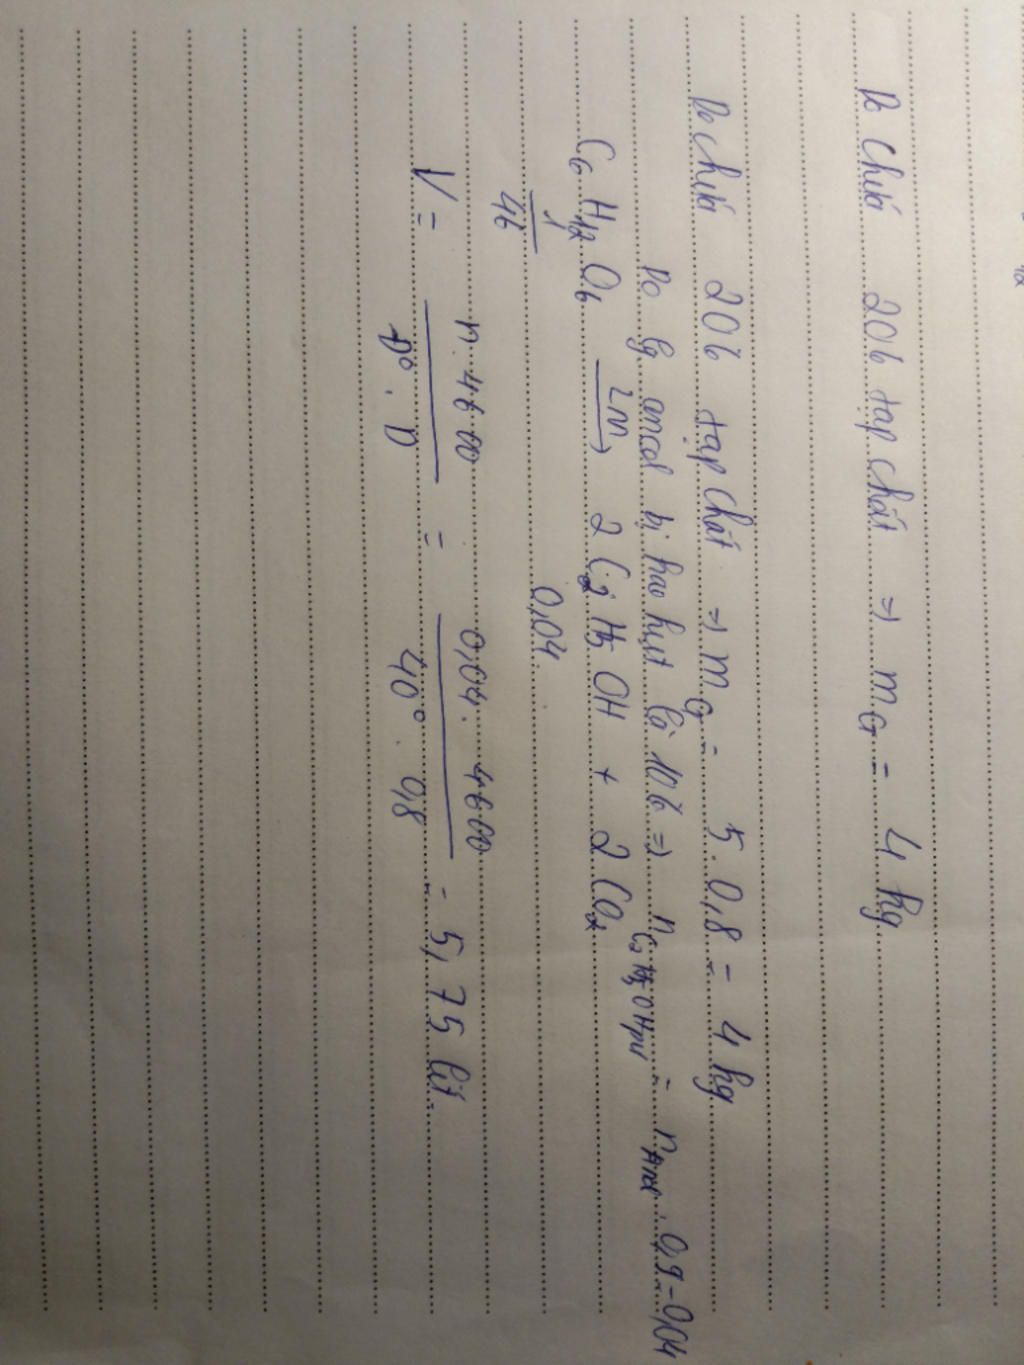 Do chứa 20% tạp chất ⇒ mG = 4 kg
Do chứa 20% tạp chất ⇒ mG = 5.0,8 = 4 kg
Do lg ancol bị hao hụt là 10% ⇒ nC2H5OH pứ = nAncol . 0,9 = 0,04
C6H12O6 2m→ 2C2H5OH + 2CO2
1/46 0,04
V = n.4600 / D° . D = 0,04.4600 / 40° . 0,8 = 5,75 lít